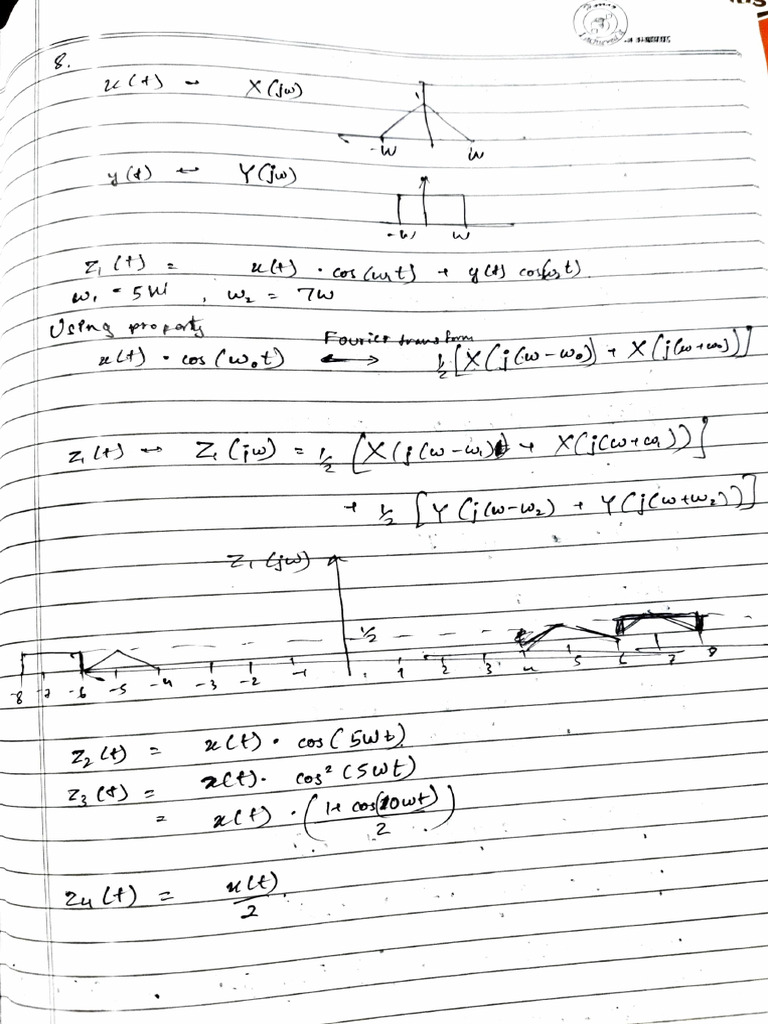 8.
x(t) ↔ X(jω)
1
-W W
y(t) ↔ Y(jω)
-W W
z₁(t) = x(t) · cos(ω₁t) + y(t) cos(ω₂t)
ω₁ = 5W, ω₂ = 7W
Using property
x(t) · cos(ω₀t) ⟷ Fourier transform ½[X(j(ω-ω₀) + X(j(ω+ω₀)]
z₁(t) ↔ Z₁(jω) = ½ [X(j(ω-ω₁) + X(j(ω+ω₁))]
+ ½ [Y(j(ω-ω₂) + Y(j(ω+ω₂))]
Z₁(jω)
½
-8 -7 -6 -5 -4 -3 -2 -1 1 2 3 4 5 6 7 8
z₂(t) = x(t) · cos(5Wt)
z₃(t) = x(t) · cos²(5Wt)
= x(t) · (1+cos(10Wt)/2)
z₄(t) = x(t)/2